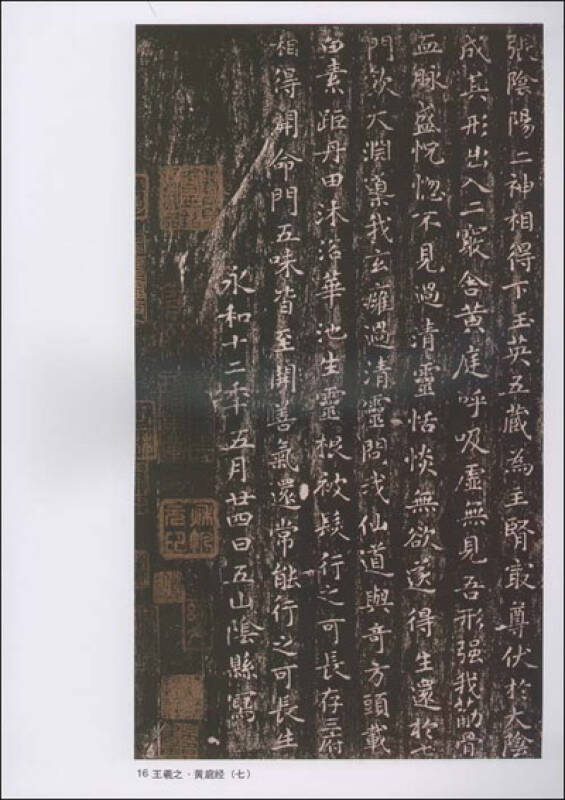 張陰陽二神相得下玉英五藏為主腎最尊伏於大陰
成其形出入二竅舍黃庭呼吸虛無見吾形强我筋骨
血脉盛恍惚不見過清靈恬惔無欲遂得生還於七
門飲大淵導我玄癰過清靈問我仙道與奇方頭載
白素距丹田沐浴華池生靈根被髮行之可長存三府
相得開命門五味皆至開善氣還常能行之可長生
永和十二年五月廿四日五山陰縣寫
16 王羲之·黄庭经（七）